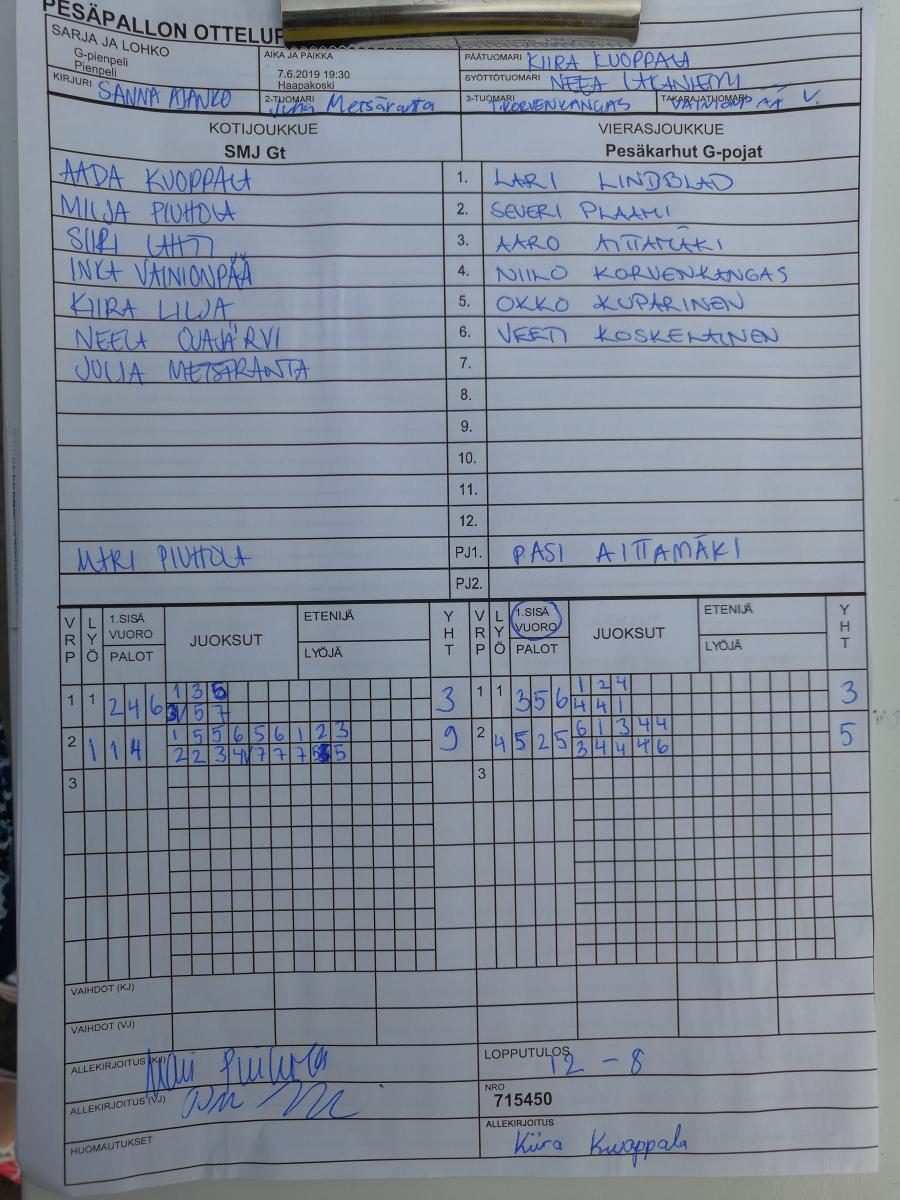 PESÄPALLON OTTELUP
SARJA JA LOHKO
G-pienpeli
Pienpeli
AIKA JA PAIKKA
7.6.2019 19:30
Haapakoski
PÄÄTUOMARI KIIRA KUOPPALA
SYÖTTÖTUOMARI NEEA
KIRJURI SANNA AJANKO
2-TUOMARI Juha Metsäranta
3-TUOMARI KORVENKANGAS
TAKARAJATUOMARI VAINIONPÄÄ V.
KOTIJOUKKUE
SMJ Gt
VIERASJOUKKUE
Pesäkarhut G-pojat
AADA KUOPPALA 1. LARI LINDBLAD
MILJA PIUHOLA 2. SEVERI PLAAMI
SIIRI LAHTI 3. AARO AITTAMÄKI
INKA VAINIONPÄÄ 4. NIILO KORVENKANGAS
KIIRA LILJA 5. OKKO KUPARINEN
NEELA OJAJÄRVI 6. VEETI KOSKELAINEN
JULIA METSÄRANTA 7.
8.
9.
10.
11.
12.
MARI PIUHOLA PJ1. PASI AITTAMÄKI
PJ2.
VRP LYÖ 1.SISÄ VUORO PALOT JUOKSUT ETENIJÄ LYÖJÄ YHT VRP LYÖ 1.SISÄ VUORO PALOT JUOKSUT ETENIJÄ LYÖJÄ YHT
1 1 2 4 6 1 3 5 3 1 1 3 5 6 1 2 4 3
3 5 7 4 4 1
2 1 1 4 1 5 5 6 5 6 1 2 3 9 2 4 5 2 5 6 1 3 4 4 5
2 2 3 4 7 7 7 5 5 3 4 4 4 6
3 3
VAIHDOT (KJ)
VAIHDOT (VJ)
ALLEKIRJOITUS (KJ) Mari Piuhola
LOPPUTULOS 12 - 8
ALLEKIRJOITUS (VJ)
NRO
715450
HUOMAUTUKSET
ALLEKIRJOITUS
Kiira Kuoppala